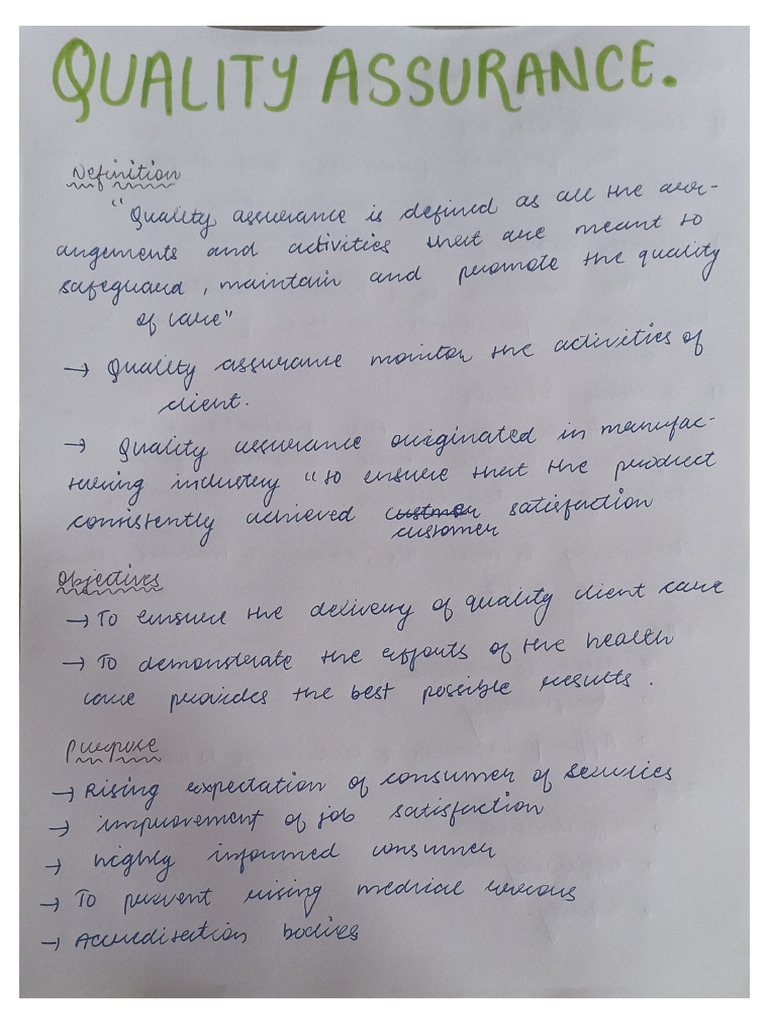 QUALITY ASSURANCE.
Definition
"Quality assurance is defined as all the arr-
angements and activities that are meant to
safeguard, maintain and promote the quality
of care"
→ Quality assurance monitor the activities of
client.
→ Quality assurance originated in manufac-
turing industry "to ensure that the product
consistently achieved custmer satisfaction
customer
Objectives
→ To ensure the delivery of quality client care
→ To demonstrate the efforts of the health
care provides the best possible results.
Purpose
→ Rising expectation of consumer of services
→ improvement of job satisfaction
→ highly informed consumer
→ To prevent rising medical errors
→ Accredisation bodies